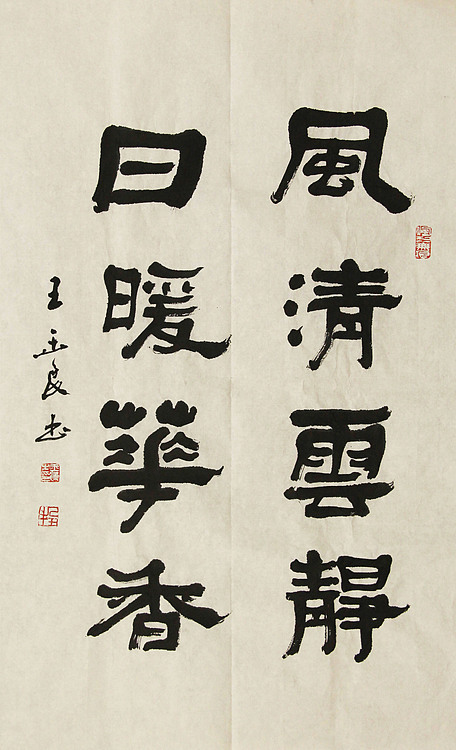 風清雲靜
日暖華香
王 良书